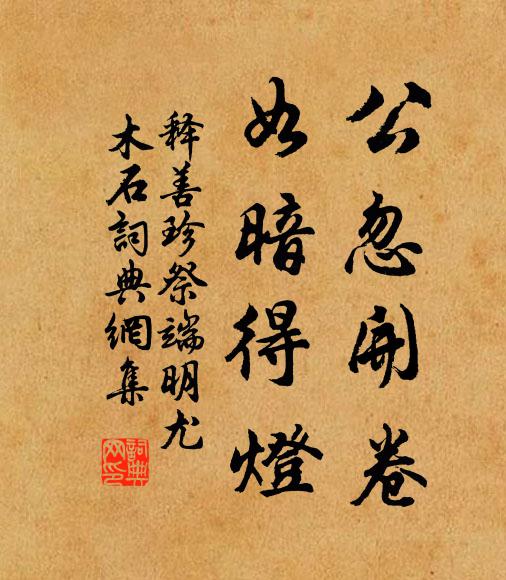 公忽開卷
如暗得燈
释善珍祭端明尤
木石詞典網集
詞典網印